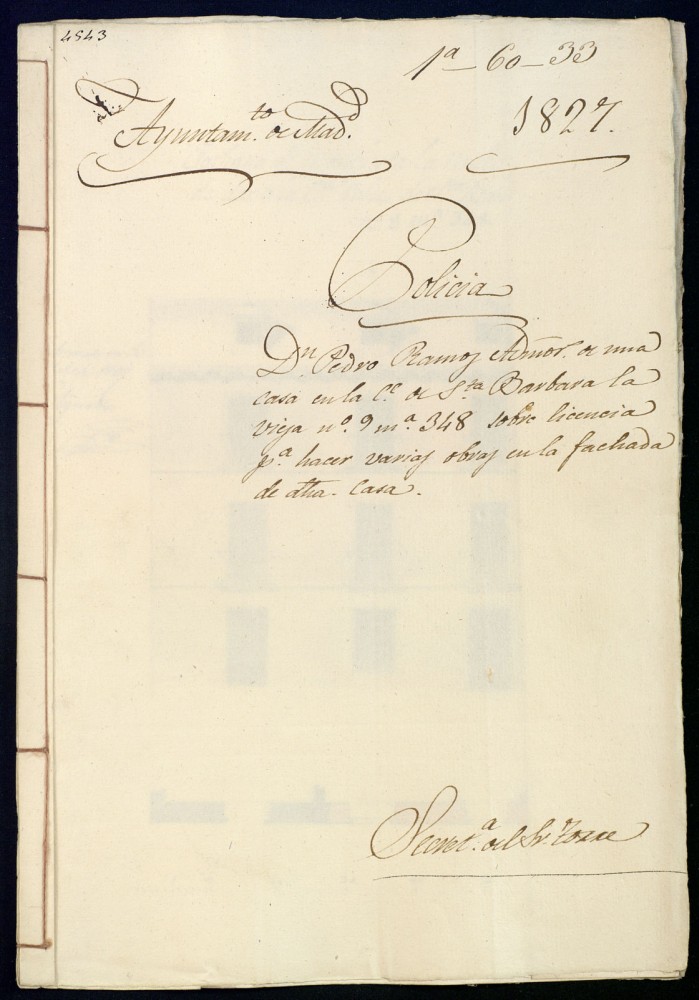 4543
1ª - 60 - 33
Ayuntam.to de Mad.d
1827.
Policia
Dn Pedro Ramos Admor. de una
casa en la C.e de Sta Barbara la
vieja nº. 9 m.ª 348 sobre licencia
p.ª hacer varias obras en la fachada
de dha. Casa.
Secret.ª del Sr. Torre